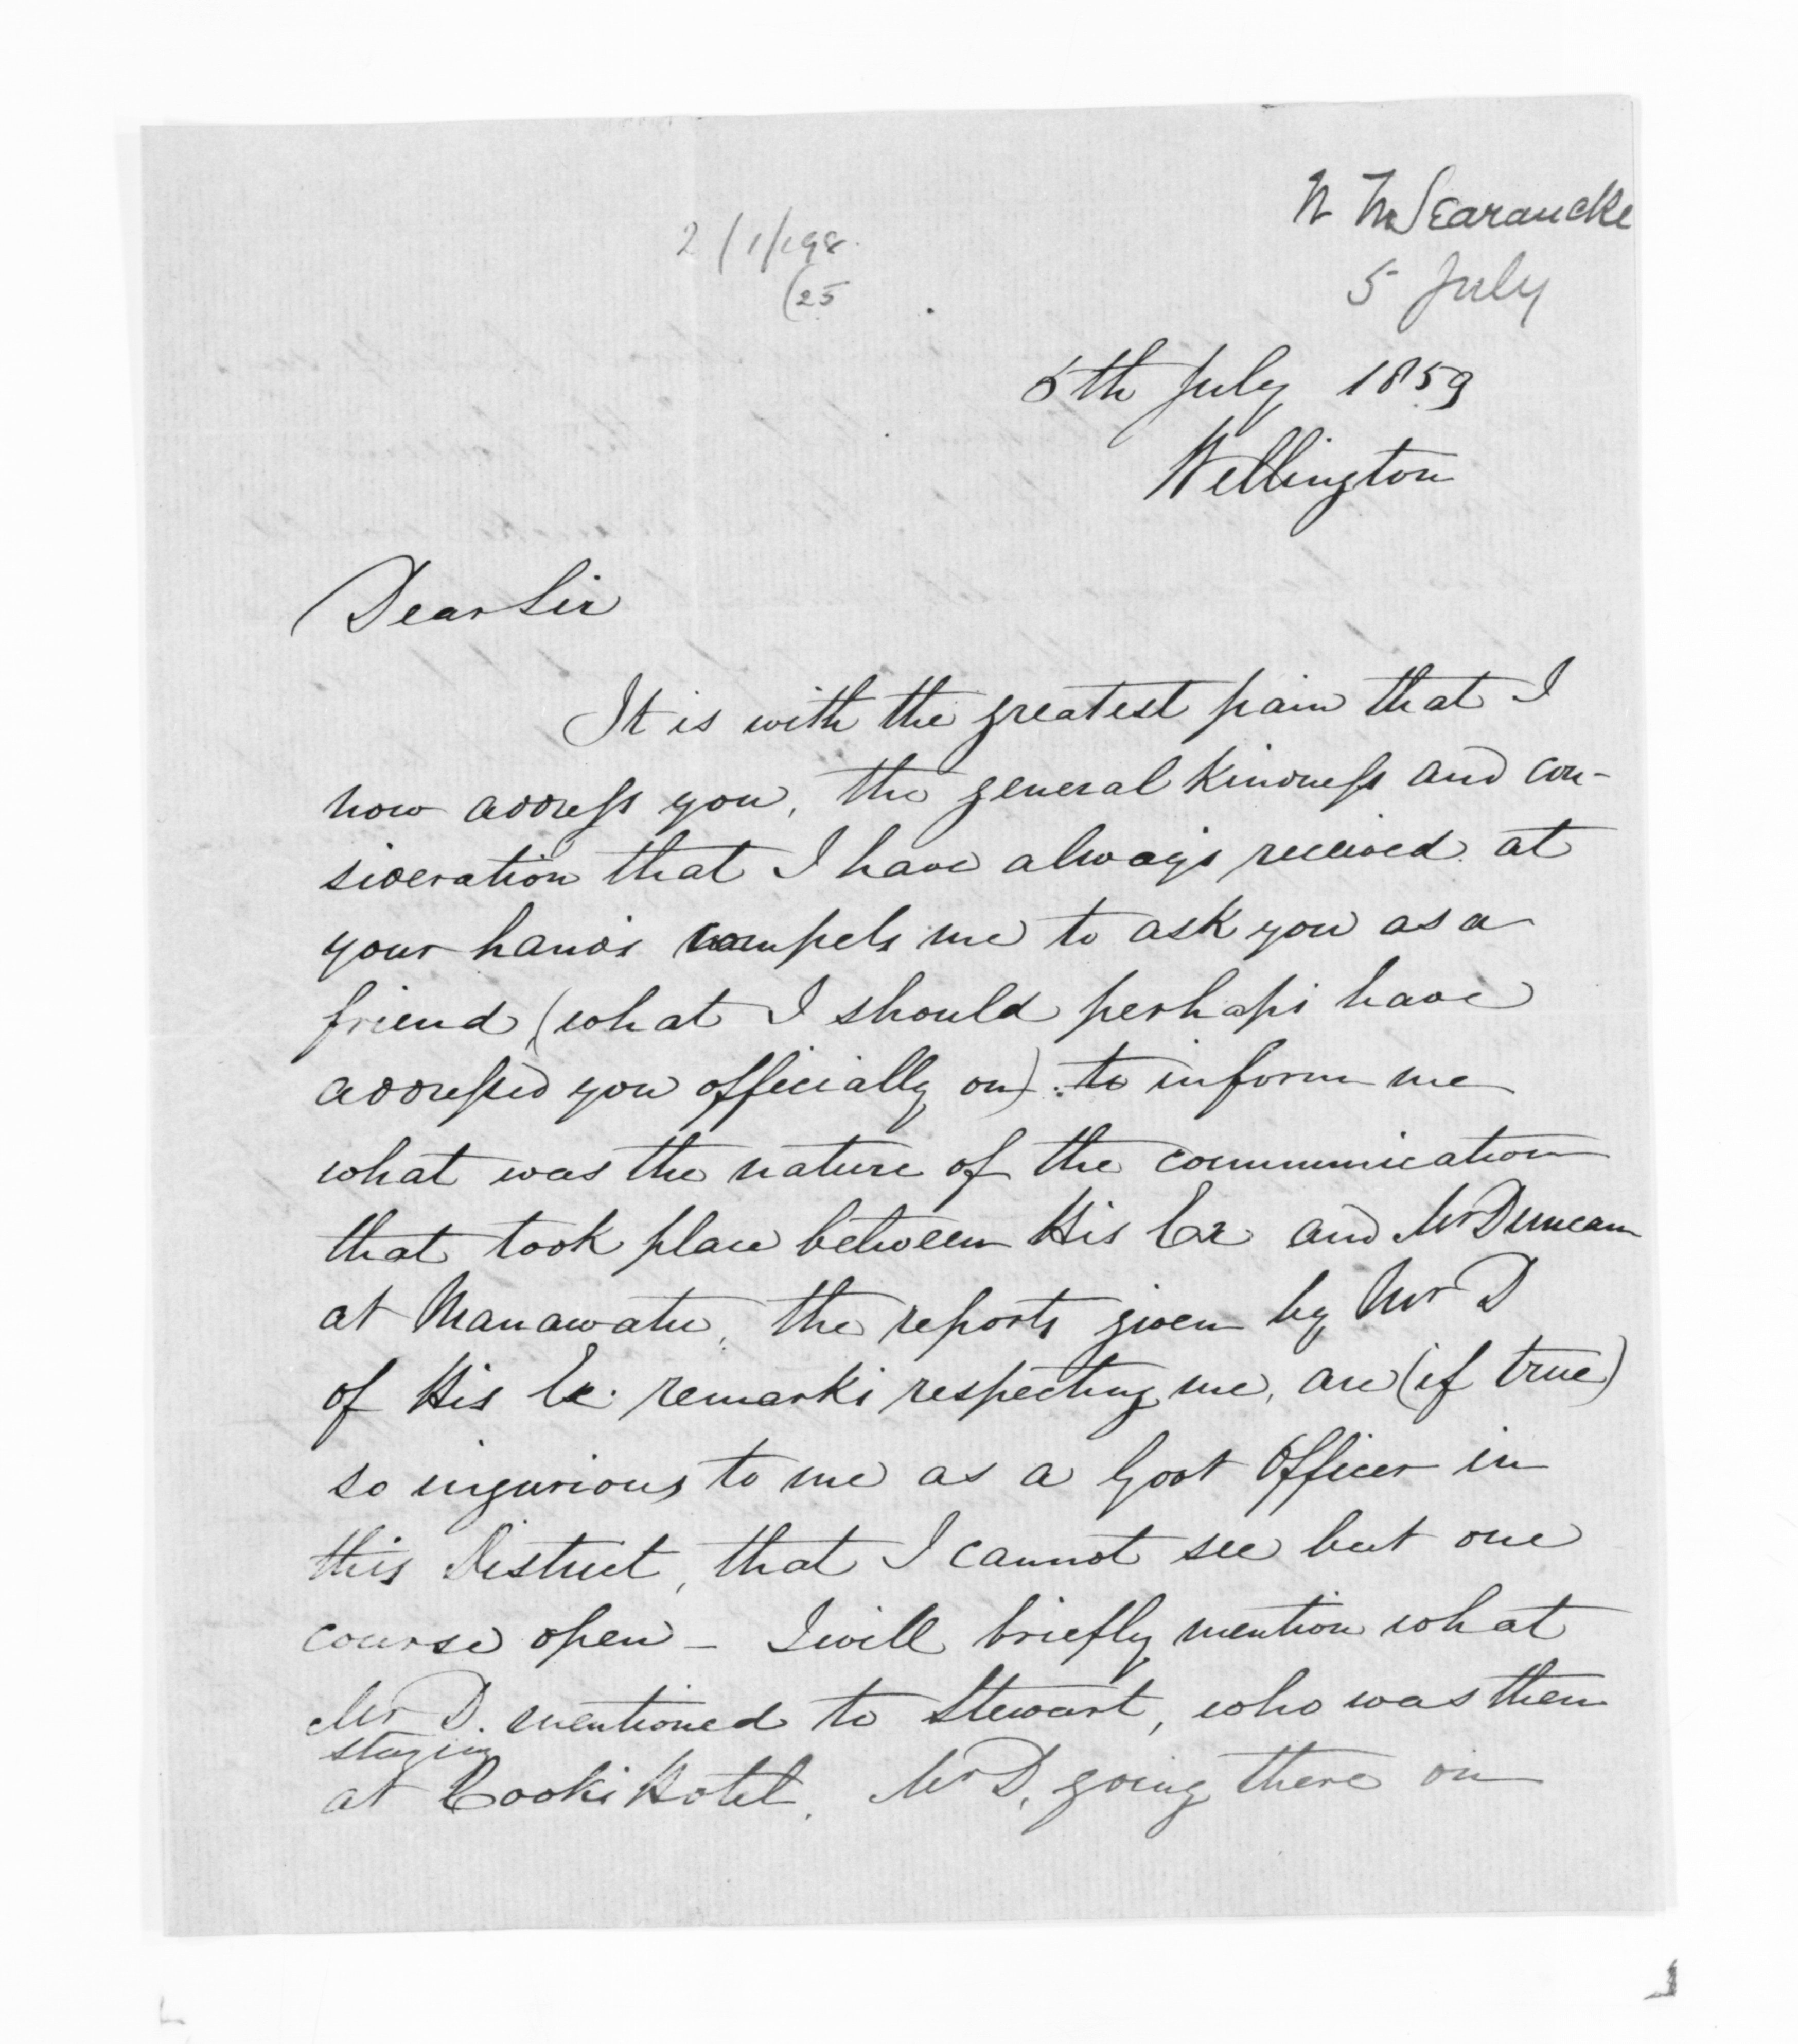 W N Searancke
5 July
2/1/198
(25
5th July 1859
Wellington
Dear Sir
It is with the greatest pain that I
now address you, the general kindness and con-
sideration that I have always received at
your hands compels me to ask you as a
friend (what I should perhaps have
addressed you officially on) to inform me
what was the nature of the communication
that took place between His Ex and Mr Duncan
at Manawatu, the reports given by Mr D
of His Ex. remarks respecting me, are (if true)
so injurious to me as a Govt Officer in
this District, that I cannot see but one
course open - I will briefly mention what
Mr D. mentioned to Stewart, who was then
staying
at Cooks Hotel. Mr D, going there on